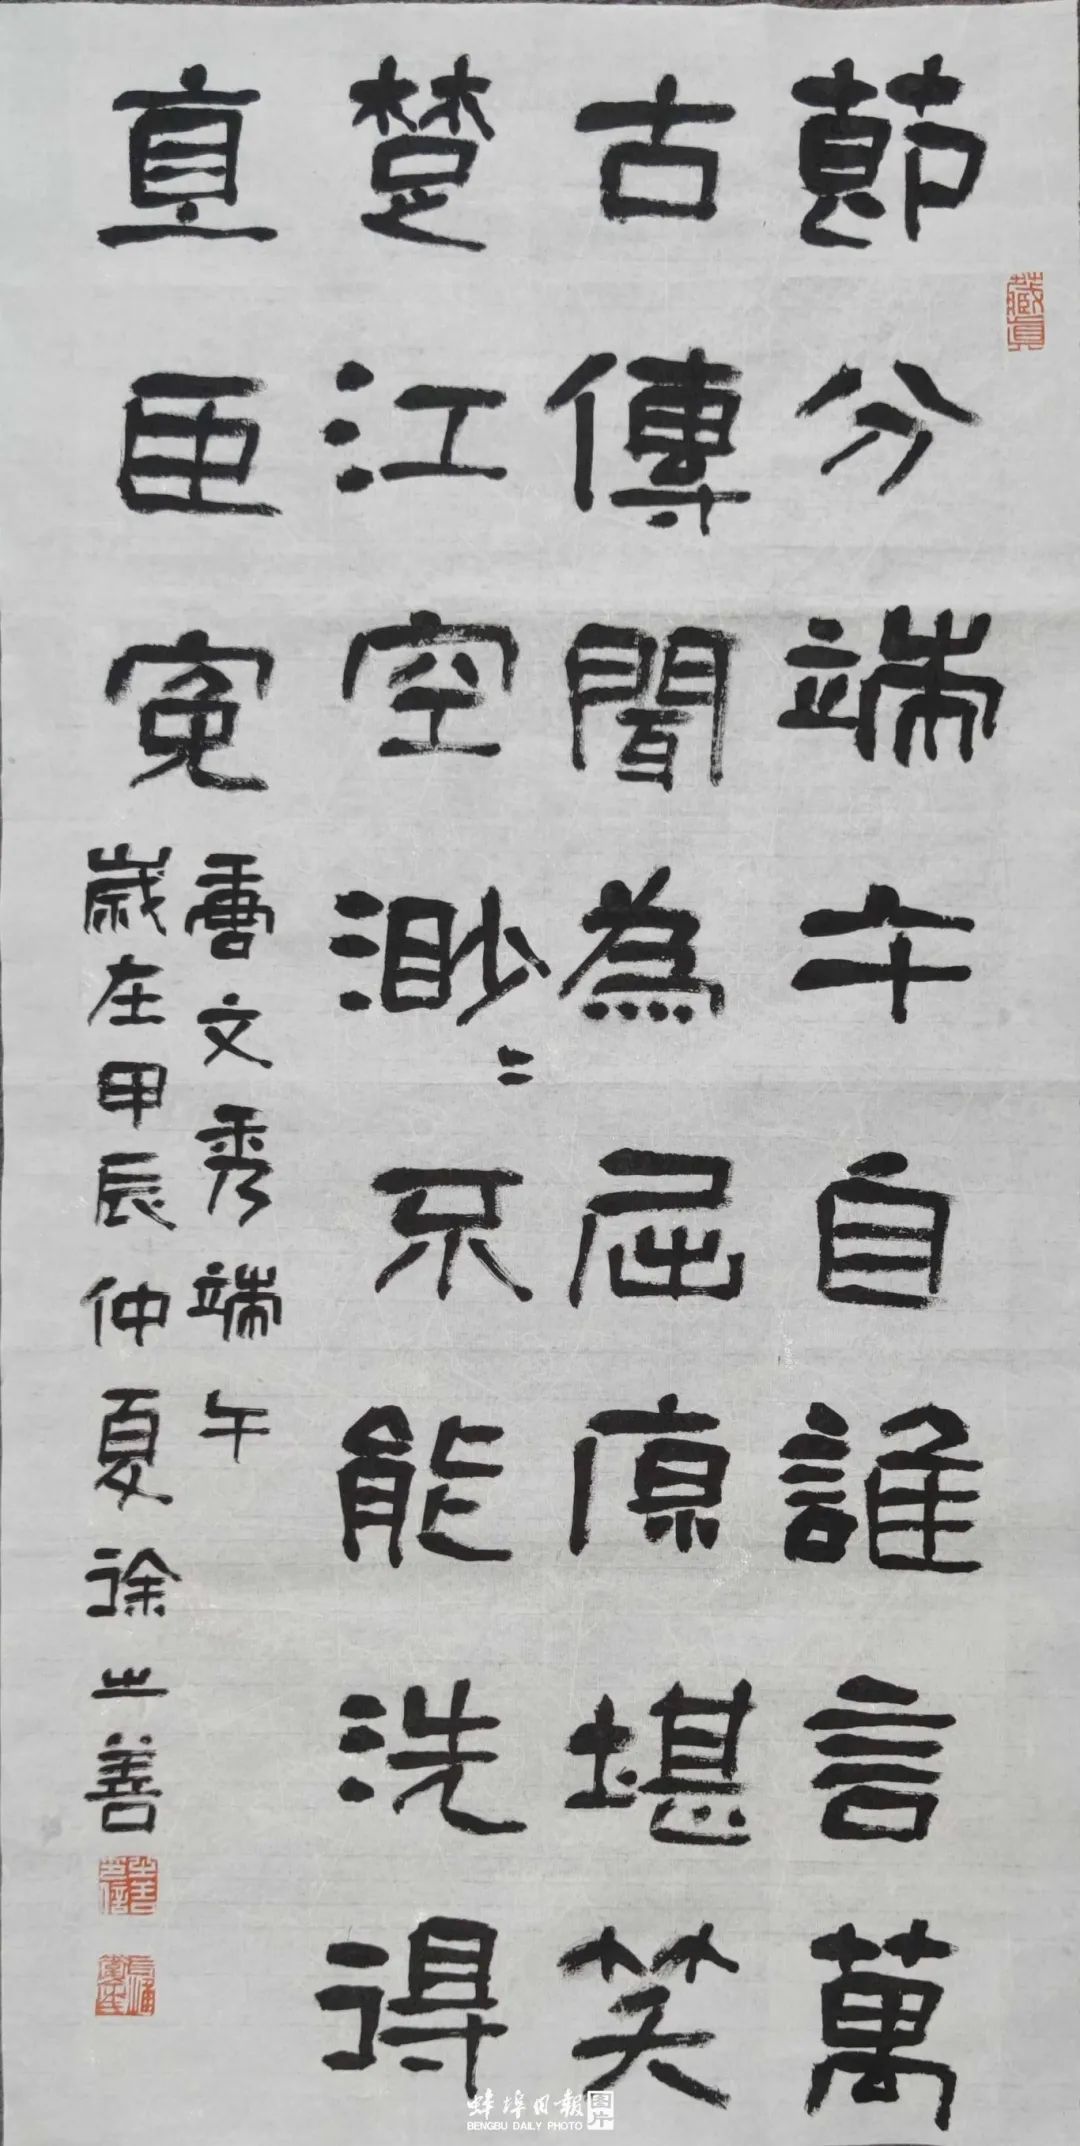 節分端午自誰言萬
古傳聞為屈原堪笑
楚江空渺〻不能洗得
直臣冤
唐文秀端午
歲在甲辰仲夏徐之善
藏真
蚌埠日報 图片
BENGBU DAILY PHOTO